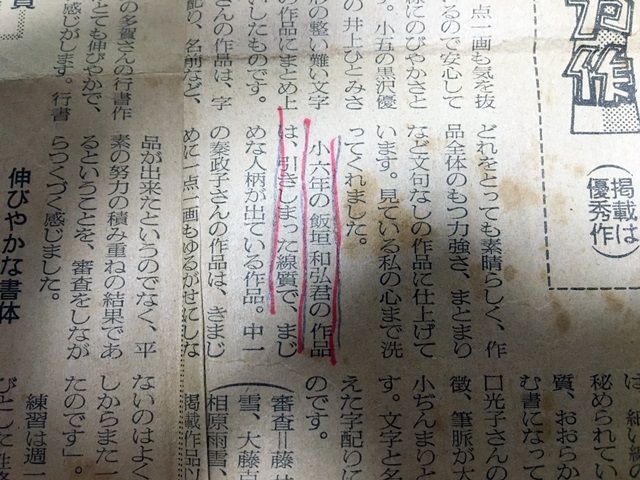 力作
(掲載は
優秀作)
点一画も気を抜
いるので安心して
様にのびやかさと
す。小五の黒沢優
の井上ひとみさ
形の整い難い文字
の作品にまとめ上
いしたものです。
さんの作品は、字
配り、名前など、
どれをとっても素晴らしく、作
品全体のもつ力強さ、まとまり
など文句なしの作品に仕上げて
います。見ている私の心まで洗
ってくれました。
小六年の飯垣和弘君の作品
は、引きしまった線質で、まじ
めな人柄が出ている作品。中一
の秦政子さんの作品は、きまじ
めに一点一画もゆるがせにしな
秘められてい
質、おおらか
む書になって
口光子さんの
徴、筆脈が大
小ぢんまりと
す。文字と名
えた字配りに
のです。
(審査=藤
雪、大藤
相原雨雪、
掲載作品以
賞
の多賀さんの行書作
とても伸びやかで、
感じがします。行書
品が出来たというのでなく、平
素の努力の積み重ねの結果であ
るということを、審査をしなが
らつくづく感じました。
伸びやかな書体
ないのはよく
しからまた一
たのです」。
練習は週一
びとした性格